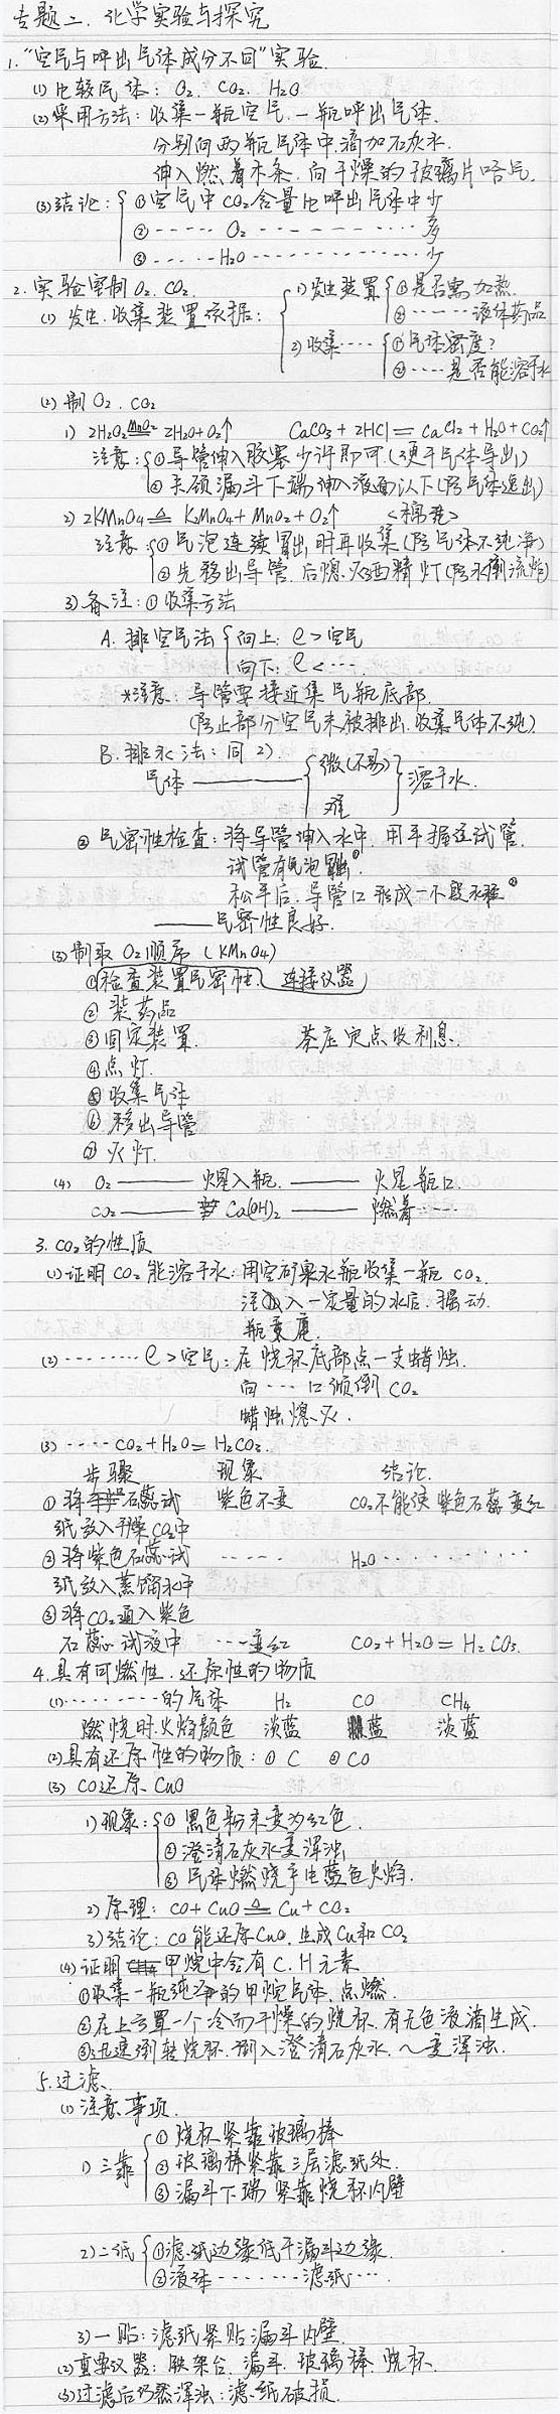 专题二、化学实验与探究
1."空气与呼出气体成分不同"实验.
(1) 比较气体: O₂. CO₂. H₂O
(2)采用方法: 收集一瓶空气.一瓶呼出气体.
分别向两瓶气体中滴加石灰水.
伸入燃着木条. 向干燥的玻璃片哈气.
(3)结论: ①空气中CO₂含量比呼出气体中少
②----- O₂ ------------多
③-----H₂O------------少
2.实验室制O₂. CO₂.
(1) 发生.收集装置依据:
1)发生装置 ①是否需加热
②------液体药品
2)收集---- ①气体密度?
②----是否能溶于水
(2) 制O₂. CO₂
1) 2H₂O₂ MnO₂ 2H₂O+O₂↑ CaCO₃+2HCl=CaCl₂+H₂O+CO₂↑
注意: ①导管伸入胶塞少许即可.(便于气体导出)
②长颈漏斗下端伸入液面以下(防气体逸出)
2) 2KMnO₄ △ K₂MnO₄+MnO₂+O₂↑ <棉花>
注意: ①气泡连续冒出时再收集(防气体不纯净)
②先移出导管.后熄灭酒精灯(防水倒流炸)
3)备注: ①收集方法
A. 排空气法 向上: ρ>空气
向下: ρ<---.
*注意: 导管要接近集气瓶底部.
(防止部分空气未被排出.收集气体不纯).
B. 排水法: 同2).
气体—— 微(不易) 难 溶于水.
② 气密性检查: 将导管伸入水中. 用手握住试管.
试管有气泡冒出①.
松手后, 导管口形成一小段水柱②
——气密性良好.
(3)制取O₂顺序 (KMnO₄)
①检查装置气密性. 连接仪器
② 装药品
③固定装置. 茶庄定点收利息.
④点灯.
⑤收集气体
⑥移出导管
⑦灭灯.
(4) O₂——火星入瓶.——火星瓶口.
CO₂—— Ca(OH)₂ ——燃着----
3. CO₂的性质
(1)证明CO₂能溶于水: 用空矿泉水瓶收集一瓶CO₂.
注入一定量的水后.振动.
瓶变瘪.
(2)------- ρ>空气: 在烧杯底部点一支蜡烛.
向---口倾倒CO₂
蜡烛熄灭.
(3) ----CO₂+H₂O=H₂CO₃.
步骤 现象 结论.
①将石蕊试 紫色不变 CO₂不能使紫色石蕊变红
纸放入干燥CO₂中
②将紫色石蕊试 ----- H₂O----------
纸放入蒸馏水中
③将CO₂通入紫色
石蕊试液中 ---变红 CO₂+H₂O=H₂CO₃.
4.具有可燃性.还原性的物质
(1)---------的气体 H₂ CO CH₄
燃烧时火焰颜色 淡蓝 蓝 淡蓝
(2)具有还原性的物质: ① C ② CO
(3) CO还原CuO
1)现象: ① 黑色粉末变为红色.
②澄清石灰水变浑浊
③气体燃烧产生蓝色火焰.
2) 原理: CO+CuO △ Cu+CO₂
3)结论: CO能还原CuO.生成Cu和CO₂
(4)证明甲烷中含有C.H元素
①收集一瓶纯净的甲烷气体.点燃.
②在上方罩一个冷而干燥的烧杯.有无色液滴生成.
③迅速倒转烧杯.倒入澄清石灰水.~变浑浊.
5.过滤.
(1)注意事项.
1)三靠 ①烧杯紧靠玻璃棒
②玻璃棒紧靠三层滤纸处.
③漏斗下端紧靠烧杯内壁
2)二低 ①滤纸边缘低于漏斗边缘.
②液体-------滤纸---.
3)一贴: 滤纸紧贴漏斗内壁.
(2)重要仪器: 铁架台. 漏斗. 玻璃棒. 烧杯.
(3)过滤后仍然浑浊: 滤纸破损.